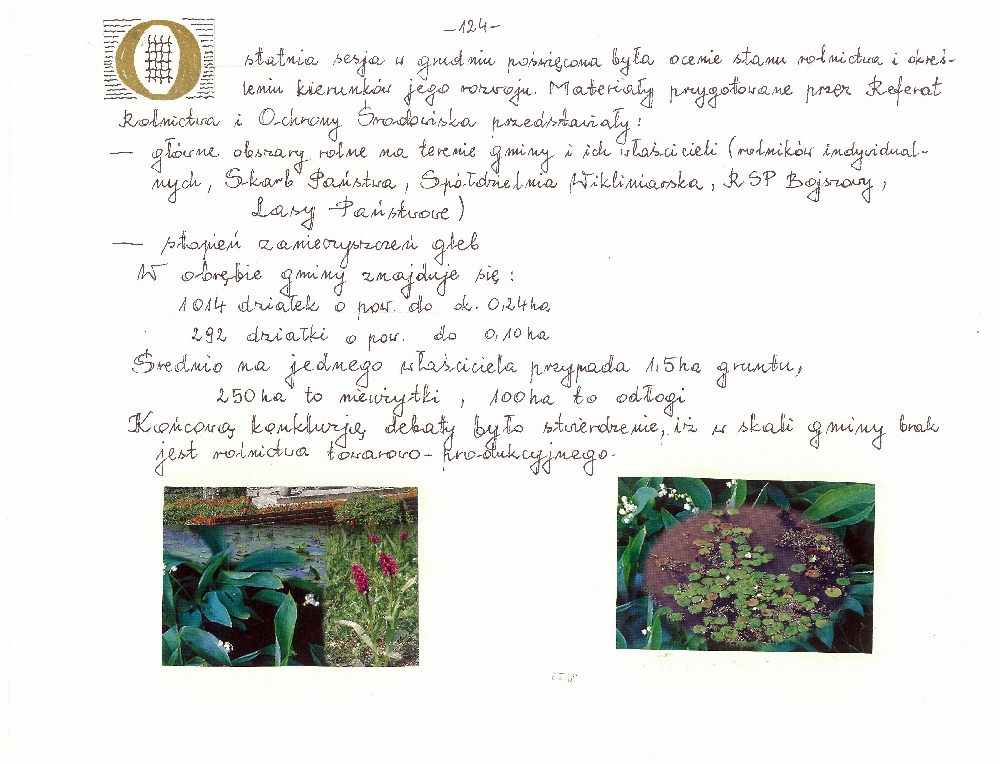 -124-
Ostatnia sesja w grudniu poświęcona była ocenie stanu rolnictwa i okreś-
leniu kierunków jego rozwoju. Materiały przygotowane przez Referat
Rolnictwa i Ochrony Środowiska przedstawiały:
— główne obszary rolne na terenie gminy i ich właścicieli (rolników indywidual-
nych, Skarb Państwa, Spółdzielnia Wikliniarska, RSP Bojszowy,
Lasy Państwowe)
— stopień zanieczyszczeń gleb
W obrębie gminy znajduje się:
1014 działek o pow. do ok. 0,24ha
292 działki o pow. do 0,10ha
Średnio na jednego właściciela przypada 1,5ha gruntu,
250ha to nieużytki, 100ha to odłogi
Końcową konkluzją debaty było stwierdzenie, iż w skali gminy brak
jest rolnictwa towarowo-produkcyjnego.